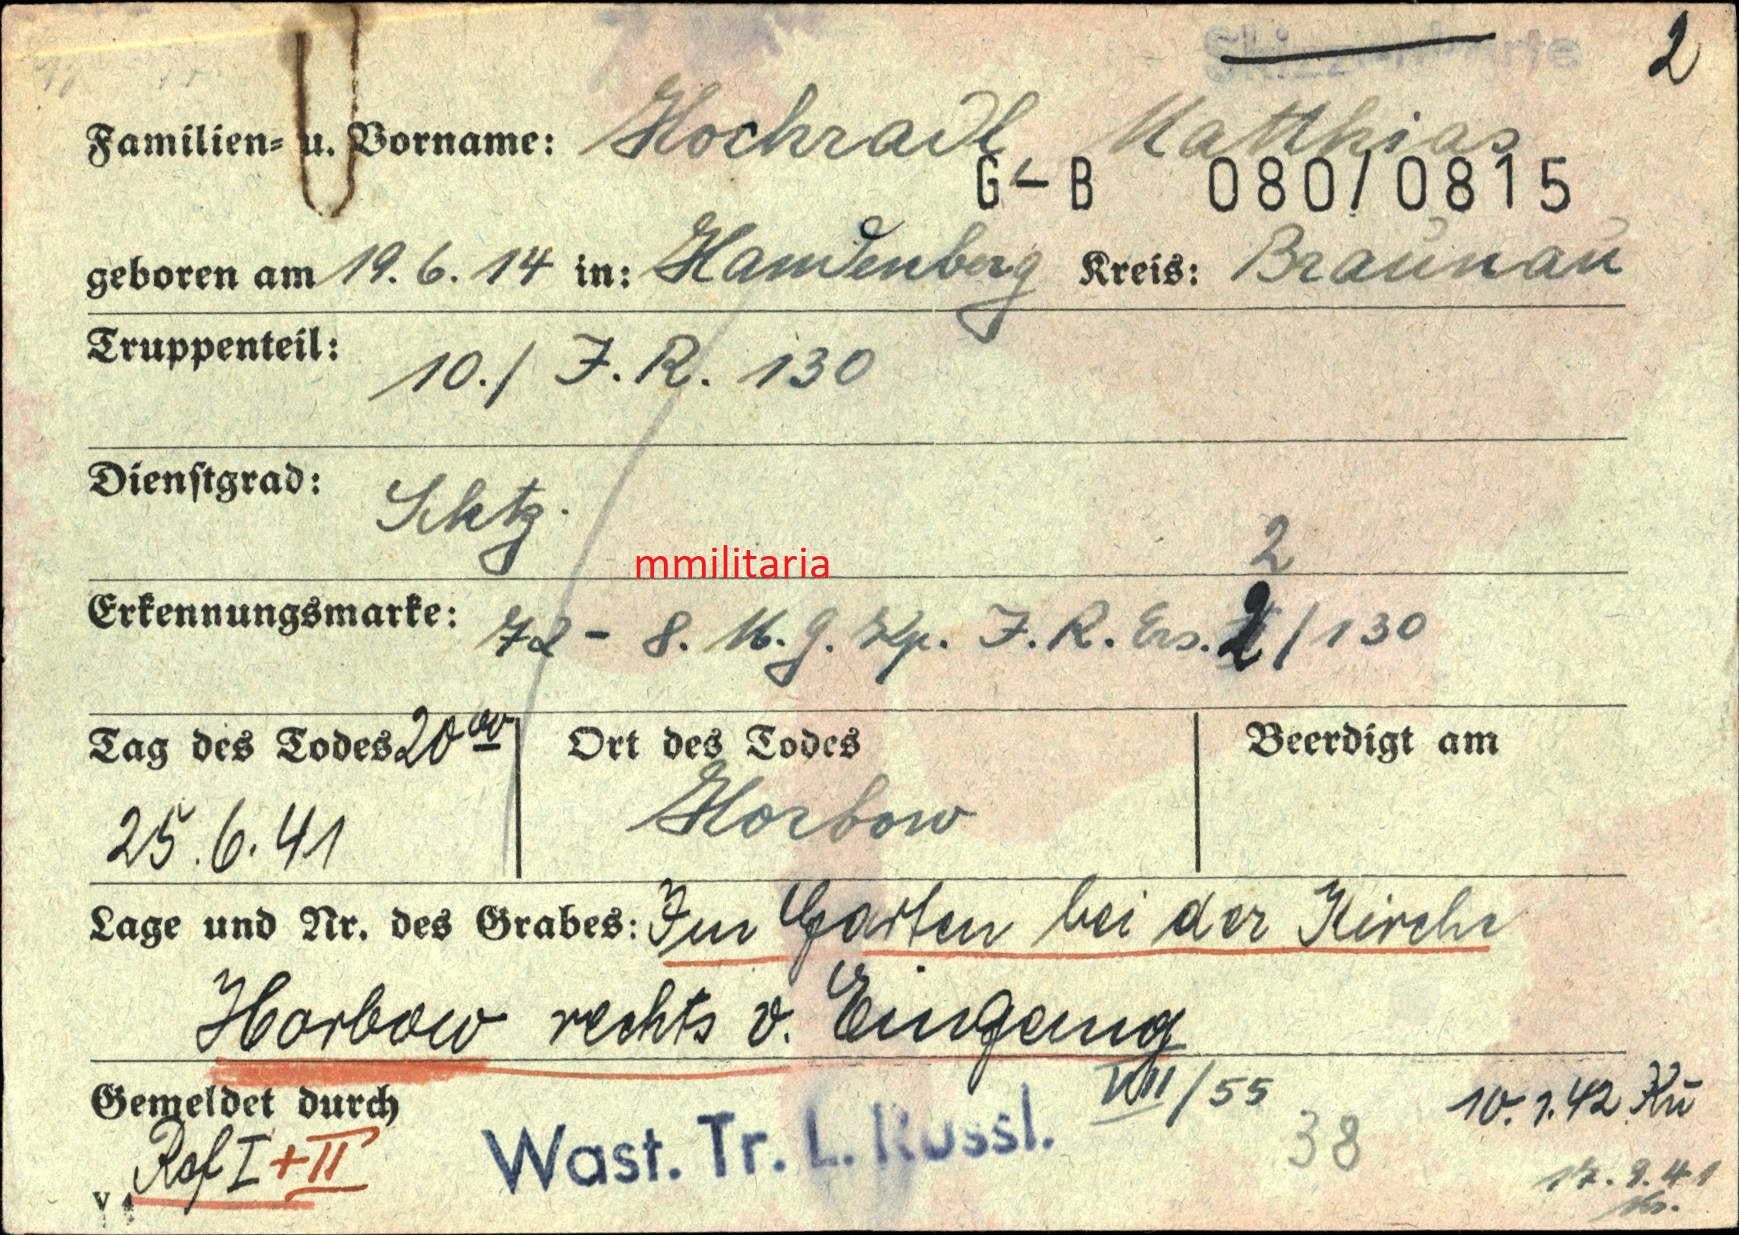 2
Familien- u. Vorname: Hochradl Matthias
G-B 080/0815
geboren am 19.6.14 in: Handenberg Kreis: Braunau
Truppenteil: 10./ J.R. 130
Dienstgrad: Schtz.
mmilitaria
2
Erkennungsmarke: 72 - 8. M.G. Kp. J.R. Ers. 2/130
Tag des Todes 20 00 Ort des Todes Beerdigt am
25.6.41 Horbow
Lage und Nr. des Grabes: Im Garten bei der Kirche
Horbow rechts v. Eingang
Gemeldet durch VIII/55 10.1.42 Kü
Ref I + II Wast. Tr. L. Russl. 38